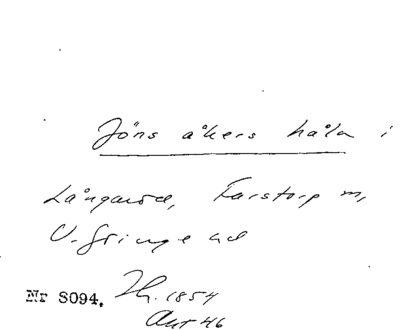 Jöns åkers håla i
Långaröd, Farstorp m,
V. Göinge hd
Nr S094. Th. 1854
Akt 46